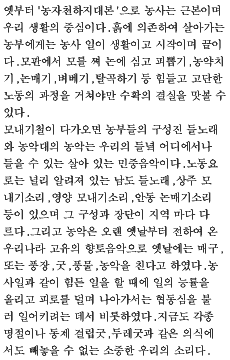 옛부터 '농자천하지대본'으로 농사는 근본이며
우리 생활의 중심이다.흙에 의존하여 살아가는
농부에게는 농사 일이 생활이고 시작이며 끝이
다.모판에서 모를 쪄 논에 심고 피뽑기,농약치
기,논매기,벼베기,탈곡하기 등 힘들고 고단한
노동의 과정을 거쳐야만 수확의 결실을 맛볼 수
있다.
모내기철이 다가오면 농부들의 구성진 들노래
와 농악대의 농악는 우리의 들녘 어디에서나
들을 수 있는 살아 있는 민중음악이다.노동요
로는 널리 알려져 있는 남도 들노래,상주 모
내기소리,영양 모내기소리,안동 논매기소리
등이 있으며 그 구성과 장단이 지역 마다 다
르다.그리고 농악은 오랜 옛날부터 전하여 온
우리나라 고유의 향토음악으로 옛날에는 매구,
또는 풍장,굿,풍물,농악을 친다고 하였다.농
사일과 같이 힘든 일을 할 때에 일의 능률을
올리고 피로를 덜며 나아가서는 협동심을 불
러 일어키려는 데서 비롯하였다.지금도 각종
명절이나 동제 걸립굿,두레굿과 같은 의식에
서도 빼놓을 수 없는 소중한 우리의 소리다.